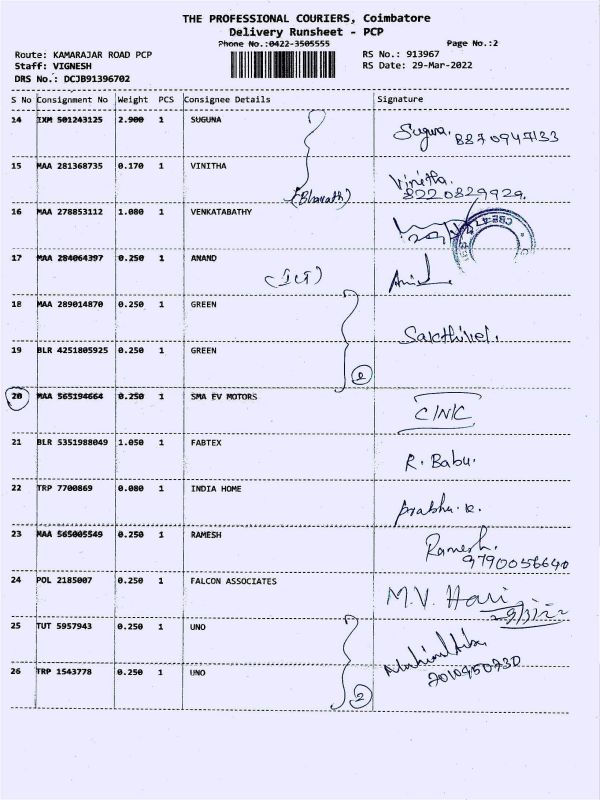 THE PROFESSIONAL COURIERS, Coimbatore
Delivery Runsheet - PCP
Phone No.:0422-3505555 Page No.:2
Route: KAMARAJAR ROAD PCP RS No.: 913967
Staff: VIGNESH RS Date: 29-Mar-2022
DRS No.: DCJB91396702
S No Consignment No Weight PCS Consignee Details Signature
14 IXM 501243125 2.900 1 SUGUNA Suguna. 8870947133
15 MAA 281368735 0.170 1 VINITHA Vinitha.
(Bharath) 8220829929.
16 MAA 278853112 1.080 1 VENKATABATHY
17 MAA 284064397 0.250 1 ANAND
18 MAA 289014870 0.250 1 GREEN Sakthivel.
19 BLR 4251805925 0.250 1 GREEN
2
20 MAA 565194664 0.250 1 SMA EV MOTORS CINIC
21 BLR 5351988049 1.050 1 FABTEX R. Babu.
22 TRP 7700869 0.080 1 INDIA HOME Prabhu. K.
23 MAA 565005549 0.250 1 RAMESH Ramesh.
9790056640
24 POL 2185007 0.250 1 FALCON ASSOCIATES M.V. Hari
29/3/22
25 TUT 5957943 0.250 1 UNO
26 TRP 1543778 0.250 1 UNO
2